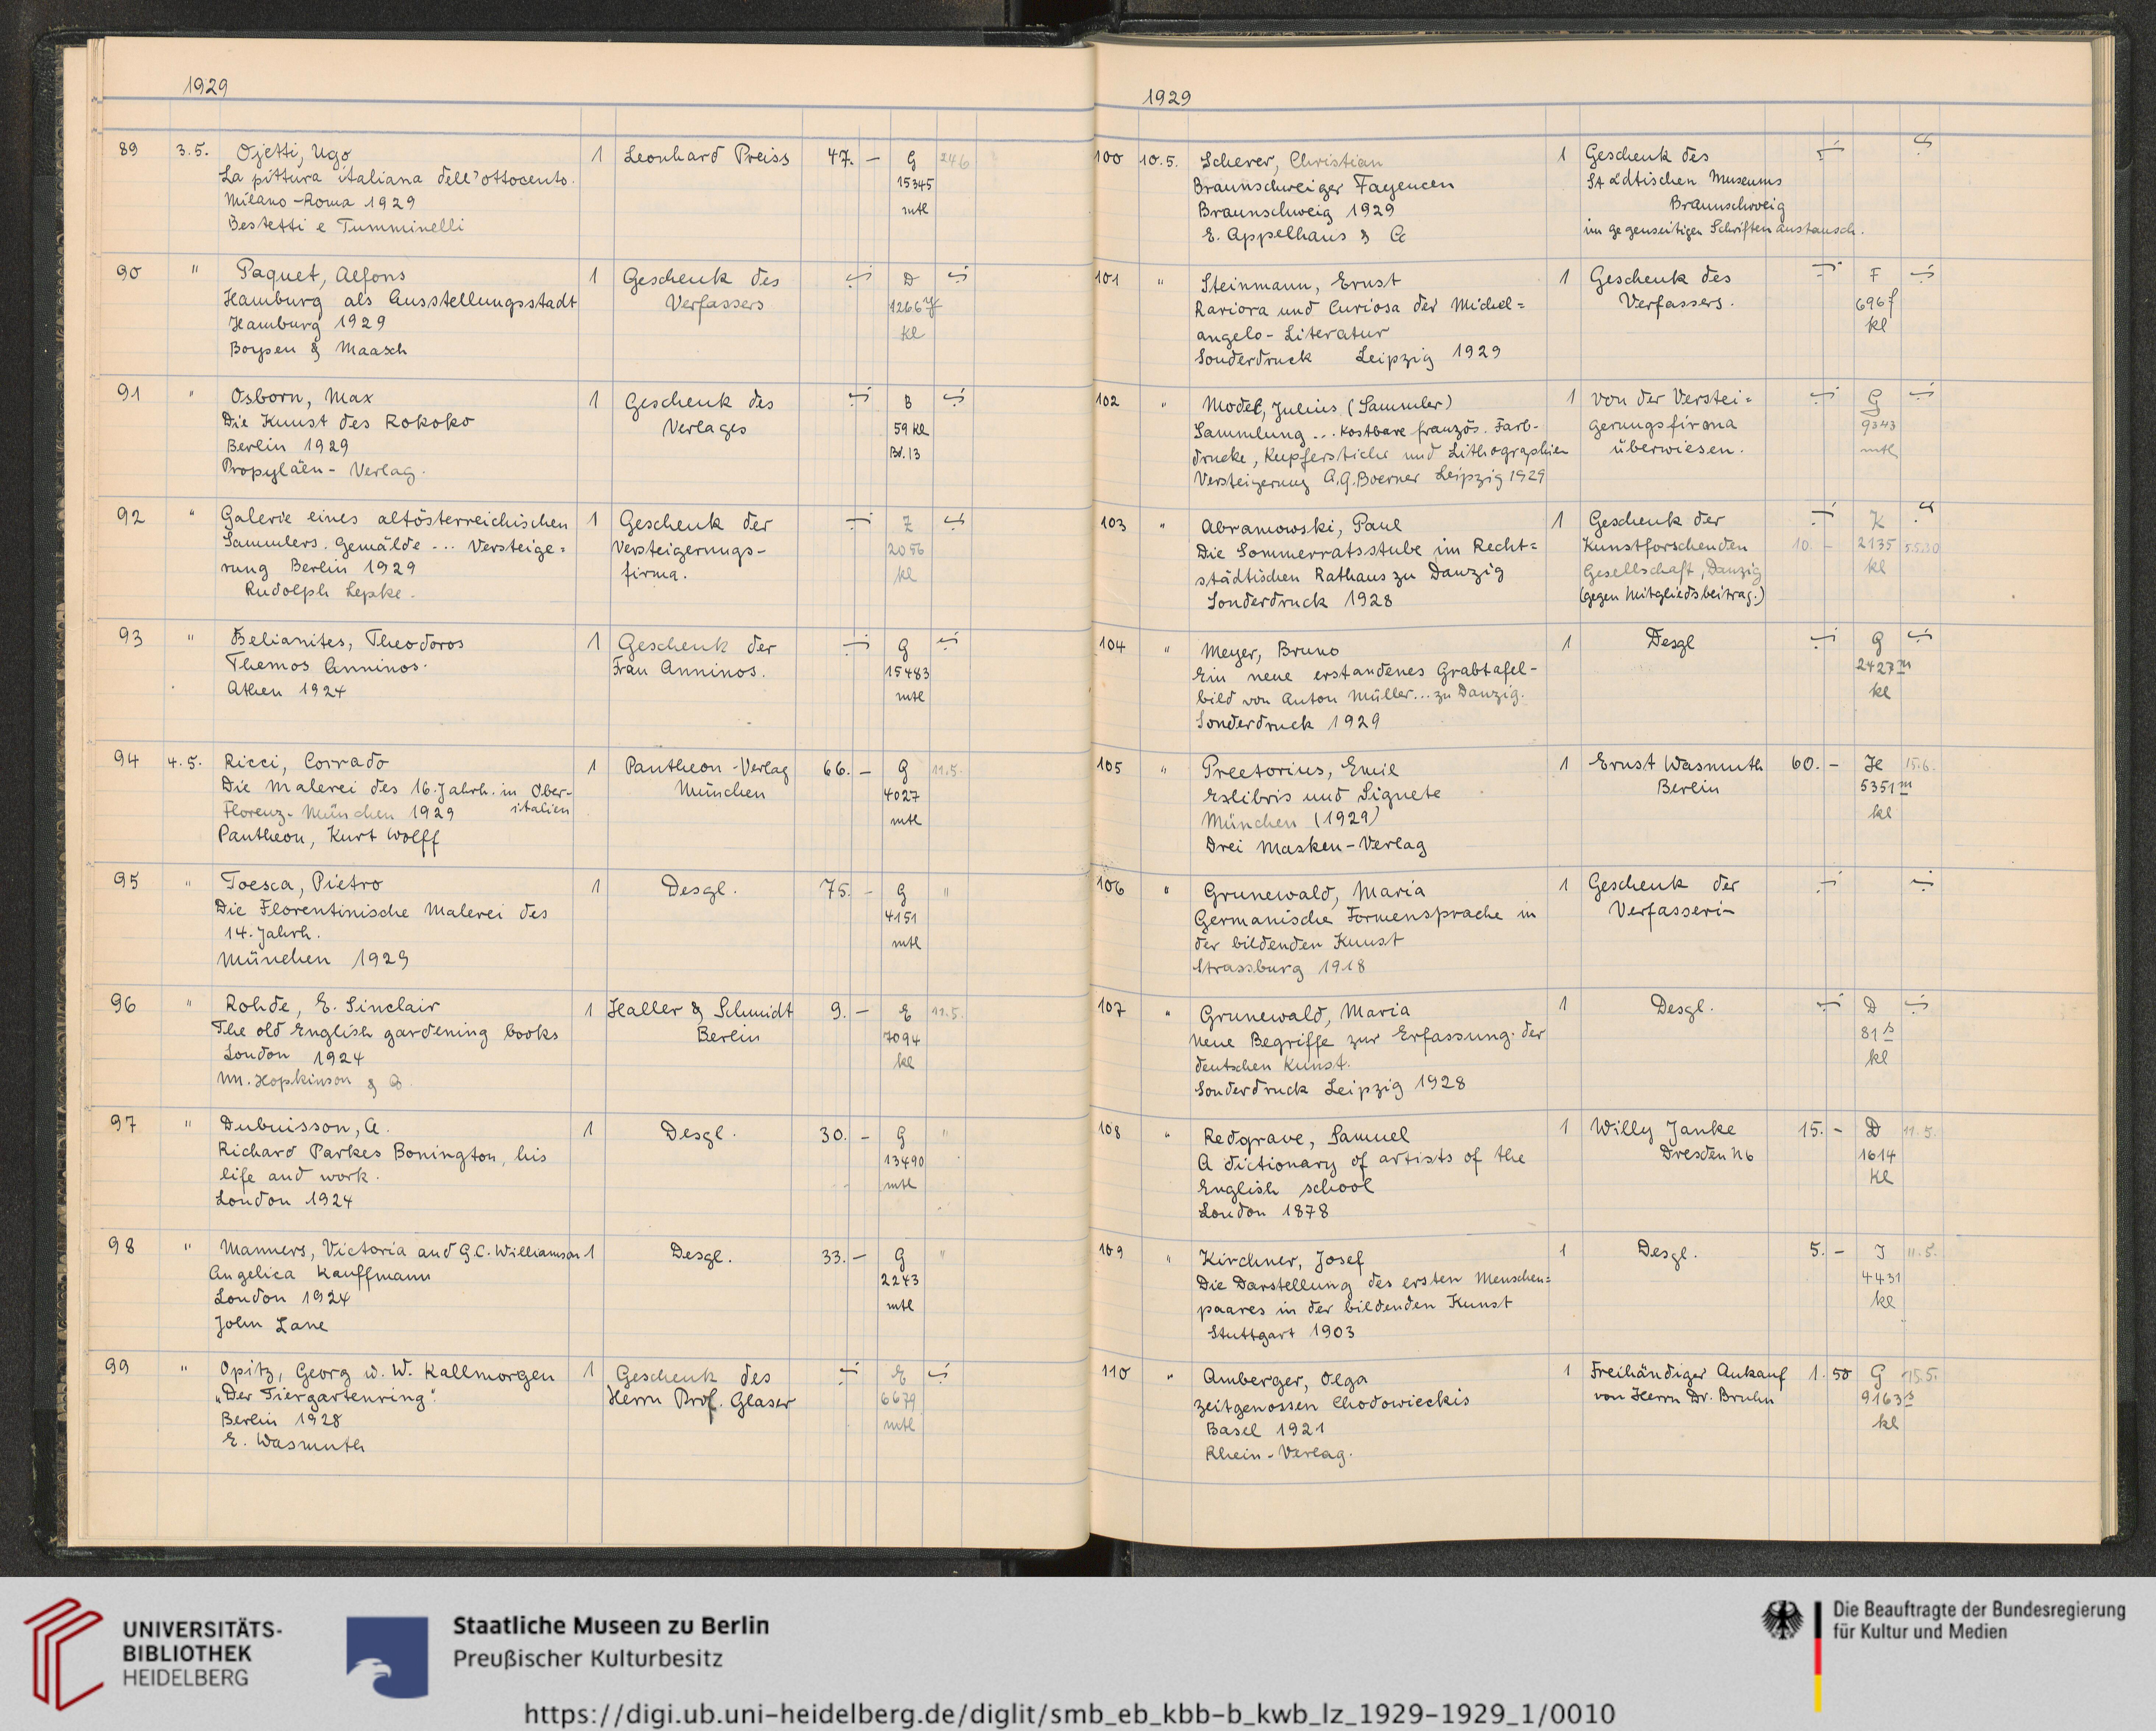 1929
89 3.5. Ojetti, Ugo 1 Leonhard Preiss 47.- G 246
La pittura italiana dell'ottocento. 15345
Milano-Roma 1929 mtl
Bestetti e Tumminelli
90 " Paquet, Alfons 1 Geschenk des D
Hamburg als Ausstellungsstadt Verfassers 1266y
Hamburg 1929 kl
Boysen & Maasch
91 " Osborn, Max 1 Geschenk des B
Die Kunst des Rokoko Verlages 59 kl
Berlin 1929 Bd. 13
Propyläen-Verlag.
92 " Galerie eines altösterreichischen 1 Geschenk der Z
Sammlers. Gemälde ... Versteige= Versteigerungs- 2056
rung Berlin 1929 firma. kl
Rudolph Lepke.
93 " Belianites, Theodoros 1 Geschenk der G
Themos Anninos. Frau Anninos. 15483
Athen 1924 mtl
94 4.5. Ricci, Corrado 1 Pantheon-Verlag 66.- G 11.5.
Die Malerei des 16. Jahrh. in Ober- München 4027
Florenz-München 1929 italien mtl
Pantheon, Kurt Wolff
95 " Toesca, Pietro 1 Desgl. 75.- G "
Die Florentinische Malerei des 4151
14. Jahrh. mtl
München 1929
96 " Rohde, E. Sinclair 1 Haller & Schmidt 9.- E 11.5.
The old English gardening books Berlin 7094
London 1924 kl
M. Hopkinson & Co.
97 " Dubuisson, A. 1 Desgl. 30.- G "
Richard Parkes Bonington, his 13490
life and work. mtl
London 1924
98 " Manners, Victoria and G.C. Williamson 1 Desgl. 33.- G "
Angelica Kauffmann 2243
London 1924 mtl
John Lane
99 " Opitz, Georg u. W. Kallmorgen 1 Geschenk des E
"Der Tiergartenring". Herrn Prof. Glaser 6679
Berlin 1928 mtl
E. Wasmuth
1929
100 10.5. Scherer, Christian 1 Geschenk des
Braunschweiger Fayencen Städtischen Museums
Braunschweig 1929 Braunschweig
E. Appelhans & Co im gegenseitigen Schriftenaustausch.
101 " Steinmann, Ernst 1 Geschenk des F
Rariora und Curiosa der Michel= Verfassers. 696f
angelo-Literatur kl
Sonderdruck Leipzig 1929
102 " Model, Julius (Sammler) 1 von der Verstei= G
Sammlung ... Kostbare französ. Farb- gerungsfirma 9343
drucke, Kupferstiche und Lithographien überwiesen. mtl
Versteigerung C.G. Boerner Leipzig 1929
103 " Abramowski, Paul 1 Geschenk der K
Die Sommerratsstube im Recht= Kunstforschenden 10.- 2135 5.5.30
städtischen Rathaus zu Danzig Gesellschaft, Danzig kl
Sonderdruck 1928 (gegen Mitgliedsbeitrag.)
104 " Meyer, Bruno 1 Desgl G
Ein neue erstandenes Grabtafel- 2427m
bild von Anton Müller... zu Danzig. kl
Sonderdruck 1929
105 " Preetorius, Emil 1 Ernst Wasmuth 60.- He 15.6.
Exlibris und Signete Berlin 5351m
München (1929) kl
Drei Masken-Verlag
106 " Grunewald, Maria 1 Geschenk der
Germanische Formensprache in Verfasserin
der bildenden Kunst
Strassburg 1918
107 " Grunewald, Maria 1 Desgl. D
Neue Begriffe zur Erfassung der 81s
deutschen Kunst. kl
Sonderdruck Leipzig 1928
108 " Redgrave, Samuel 1 Willy Janke 15.- D 11.5.
A dictionary of artists of the Dresden N6 1614
English school kl
London 1878
109 " Kirchner, Josef 1 Desgl. 5.- J 11.5.
Die Darstellung des ersten Menschen= 4431
paares in der bildenden Kunst kl
Stuttgart 1903
110 " Amberger, Olga 1 Freihändiger Ankauf 1.50 G 15.5.
Zeitgenossen Chodowieckis von Herrn Dr. Bruhn 9163s
Basel 1921 kl
Rhein-Verlag.
UNIVERSITÄTS-
BIBLIOTHEK
HEIDELBERG
Staatliche Museen zu Berlin
Preußischer Kulturbesitz
Die Beauftragte der Bundesregierung
für Kultur und Medien
https://digi.ub.uni-heidelberg.de/diglit/smb_eb_kbb-b_kwb_lz_1929-1929_1/0010